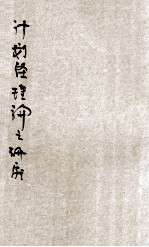 计划经理论之研究